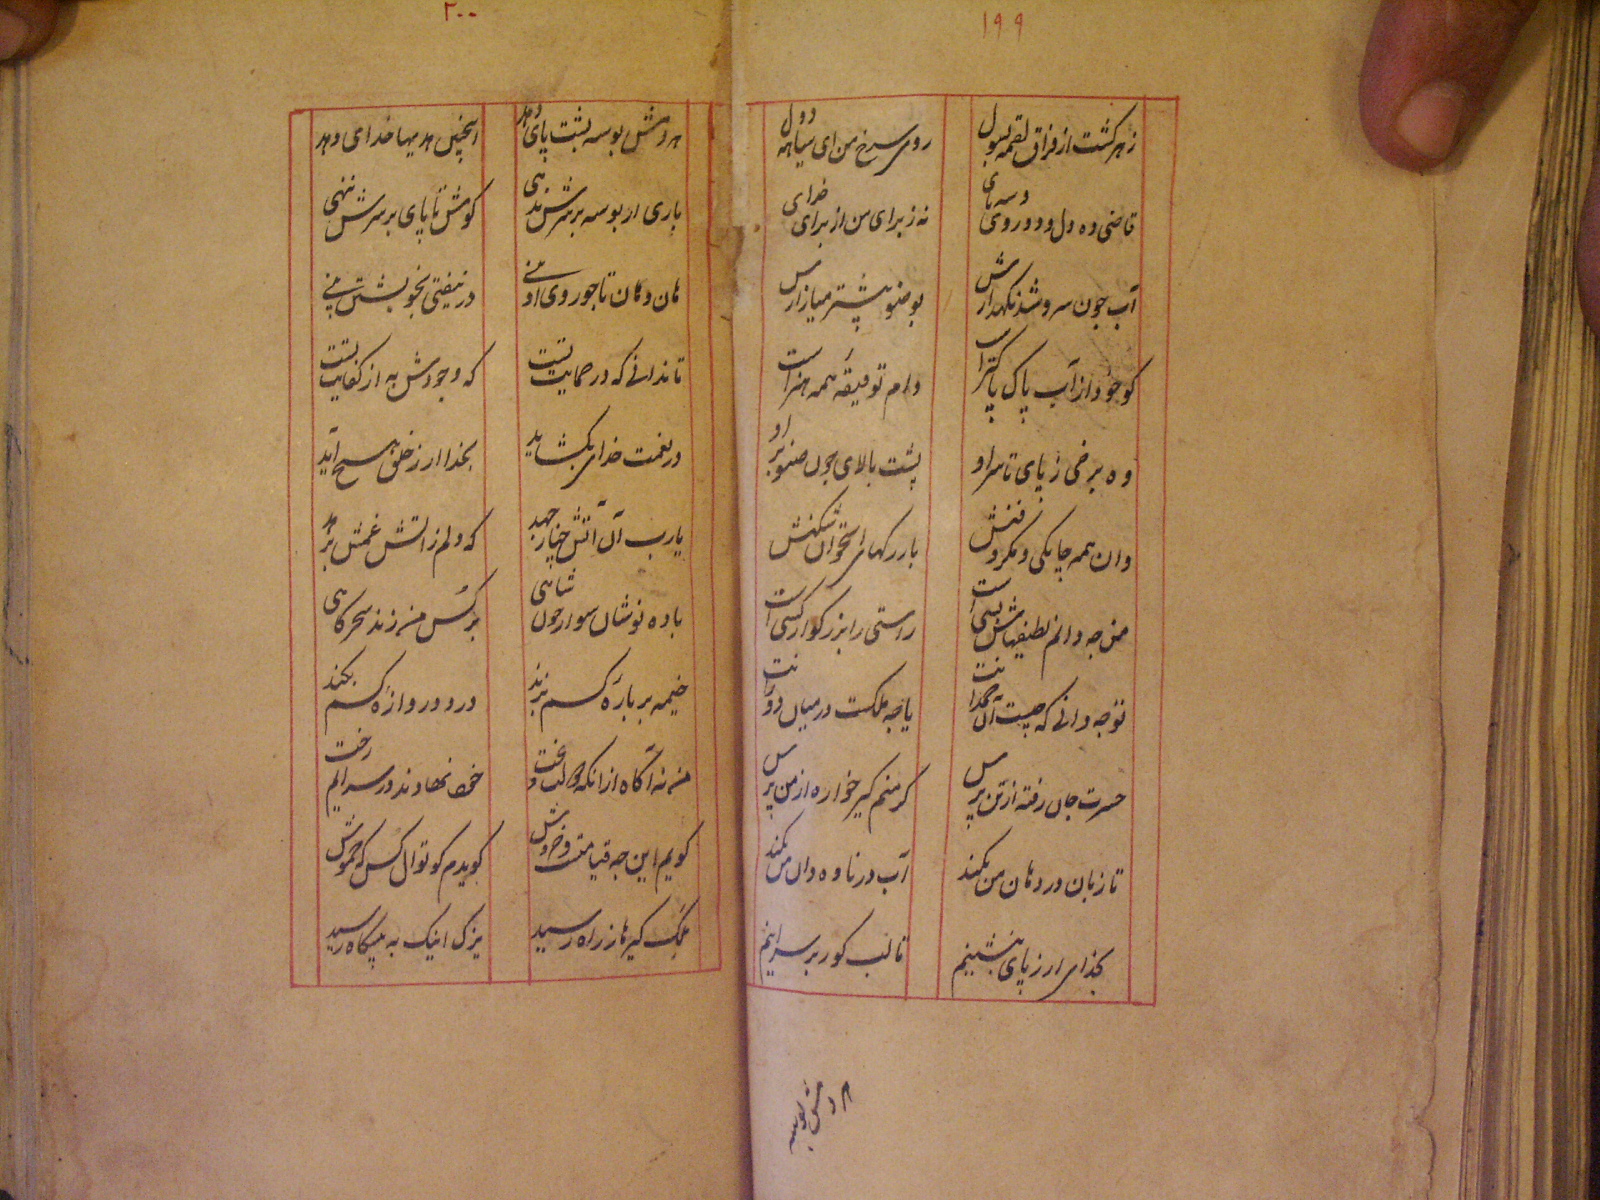 ۱۹۹
زهر گشت از فراق لقمه بول
روی سرخ من ای سیاهه دول
قاضی وه دل و دو روی و سه تای
نه ز برای من از برای خدای
آب چون سرو شد نگهدارش
بوضو بیشتر میازارش
کو خود از آب پاک پاکتر است
وام توفیقه همه هنر است
وه برخی ز پای تا سر او
پشت بالای چون صنوبر او
وان همه چابکی و مکر و فنش
با رگهای استخوان شکنش
من چه دانم لطیفهاش بسی است
راستی را بزرگوار کسی است
تو چه دانی که چیست آن
یا چه ملکت در میان دو رانت
حسرت جان رفته از تن پرس
گر منم کیر خواره از من پرس
تا زبان در دهان من نکند
آب در ناوه دان من نکند
بخدای ار ز پای بنشینم
تا لب کور بر سر اینم
هر دمش بوسه
۲۰۰
هر دمش بوسه پشت پای دهد
اینچنین هدیها خدای دهد
باری ار بوسه بر سرش ندهی
کوش تا پای بر سرش ننهی
هان و هان تا چو روی او بینی
در نیفتی بخو بپشت بینی
تا ندانی که در حمایت تست
که وجودش به از کفایت تست
در نعمت خدای بگشاید
بخدا ار ز خلق هیچ آید
یارب آن آتش چنار جهد
که دلم ز آتش غمش برهد
باده نوشان سوار چون شاهی
بر کس من زند سحرگاهی
خیمه بر باره کسم بزند
در و دروازه کسم بکند
من نه آگاه از آنکه گفت
خصم نهادند در سرایم رخت
گویم این چه قیامت و خروش
گویدم کوتوال کس که خموش
ملک کیرها ز راه رسید
یزک اینک به پیشگاه رسید